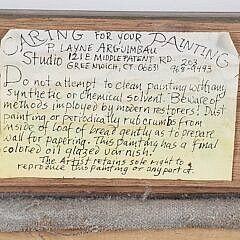 CARING FOR YOUR PAINTING
P. LAYNE ARGUIMBAU
Studio 1215 MIDDLE PATENT RD. 203
GREENWICH, CT. 06831 969-9493
Do not attempt to clean painting with any
synthetic or chemical solvent. Beware of
methods imployed by modern restorers! Dust
painting or periodically rub crumbs from
inside of loaf of bread gently as to prepare
wall for papering. This painting has a final
colored oil glazed varnish.
The Artist retains sole right to
reproduce this painting or any part of.